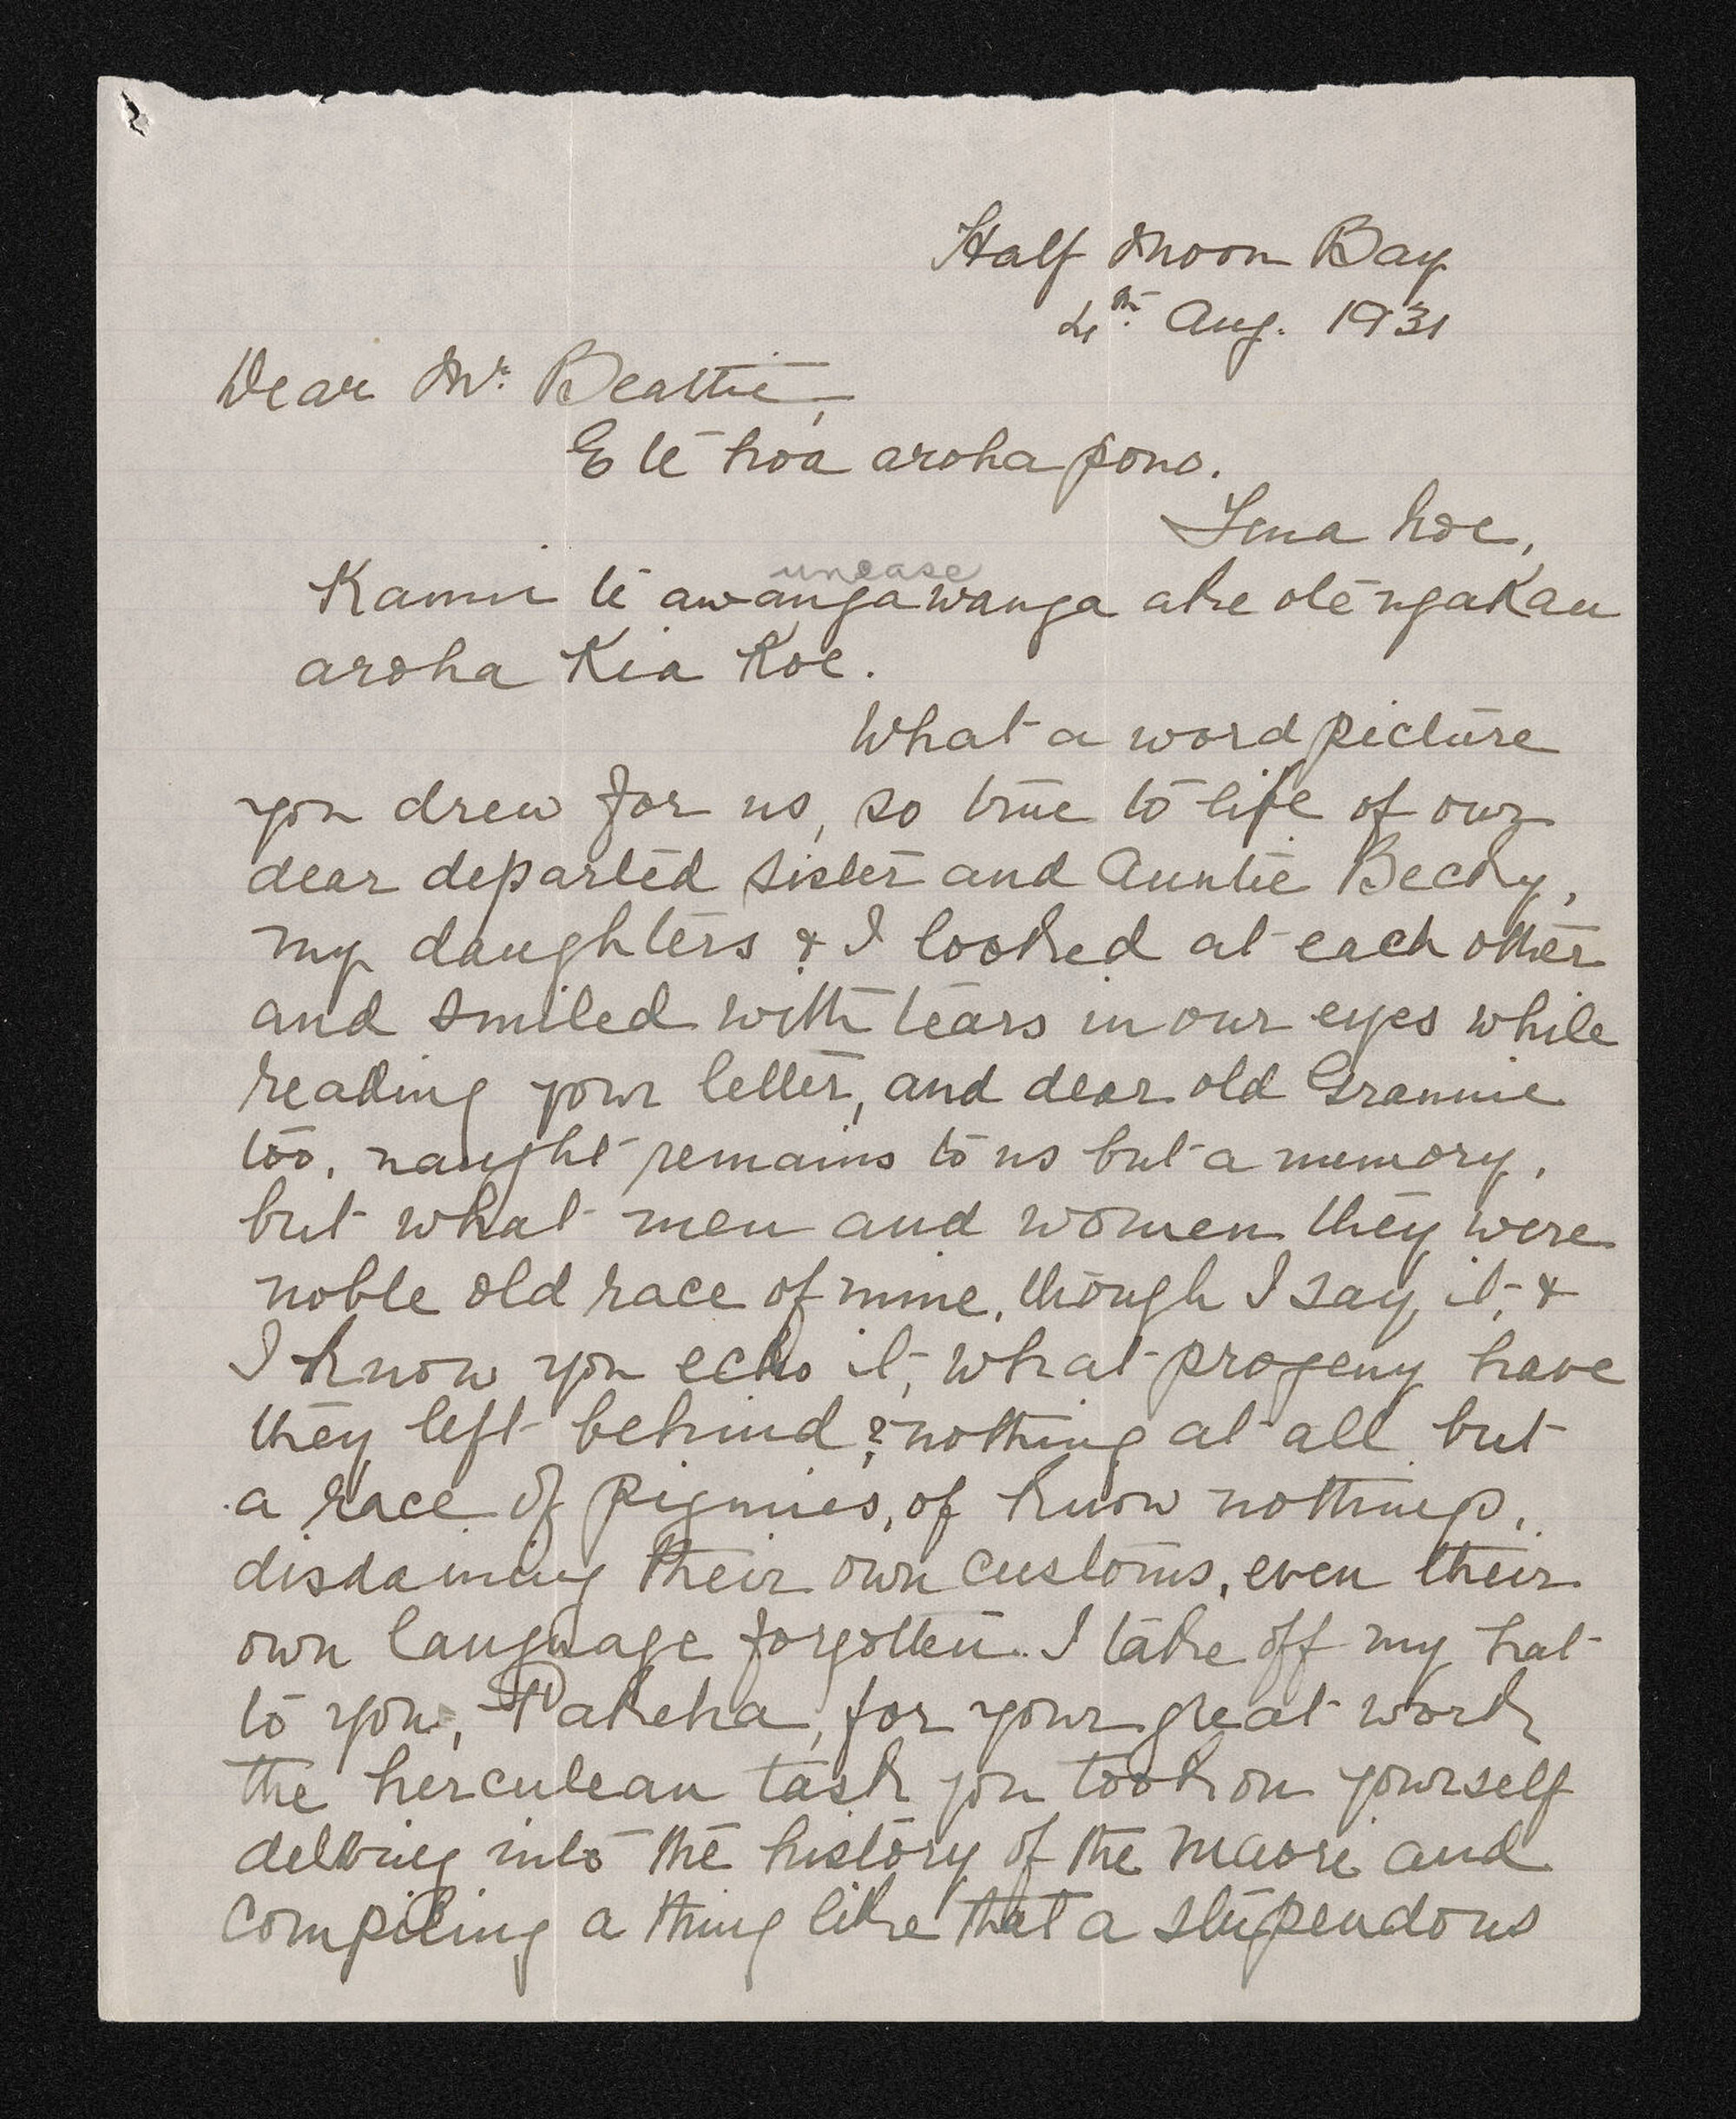 Half Moon Bay
4th. Aug. 1931
Dear Mr. Beattie,
E te hoa aroha pono.
Tena koe,
unease
Kanui te awangawanga ake o te ngakau
aroha Kia Koe.
What a word picture
you drew for us, so true to life of our
dear departed sister and Auntie Becky,
my daughters & I looked at each other
and smiled with tears in our eyes while
reading your letter, and dear old Grannie
too, naught remains to us but a memory,
but what men and women they were
noble old race of mine, though I say it, &
I know you echo it, what progeny have
they left behind? nothing at all but
a race of pigmies, of know nothings,
disdaining their own customs, even their
own language forgotten. I take off my hat
to you, Pakeha, for your great work
the herculean task you took on yourself
delving into the history of the Maori and
compiling a thing like that a stupendous